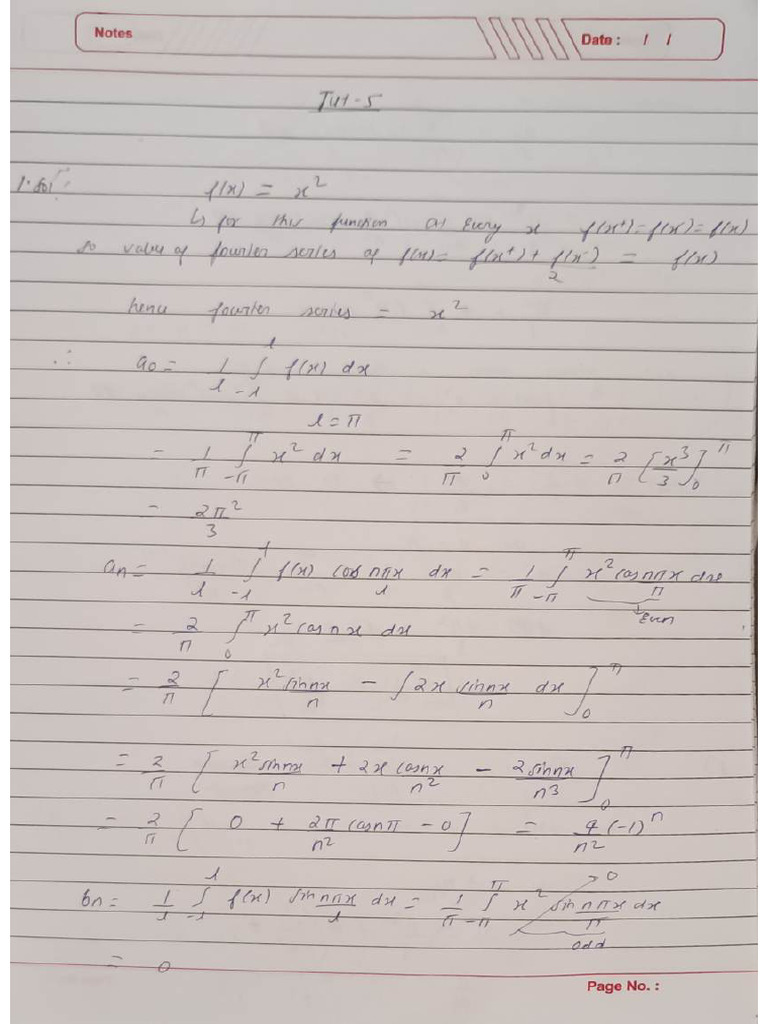 Notes
Date : / /
Tut-5
1. Sol:
f(x) = x²
↳ for this function at every x f(x⁺)=f(x⁻)=f(x)
so value of fourier series of f(x)= f(x⁺)+f(x⁻)/2 = f(x)
hence fourier series = x²
∴ a₀ = 1/l ∫₋ₗˡ f(x) dx
l = π
= 1/π ∫₋π^π x² dx = 2/π ∫₀^π x² dx = 2/π [x³/3]₀^π
= 2π²/3
aₙ = 1/l ∫₋ₗˡ f(x) cos nπx/l dx = 1/π ∫₋π^π x² cos nπx/π dx
→ Even
= 2/π ∫₀^π x² cos nx dx
= 2/π [ x² sin nx/n − ∫2x sin nx/n dx ]₀^π
= 2/π [ x² sin nx/n + 2x cos nx/n² − 2 sin nx/n³ ]₀^π
= 2/π [ 0 + 2π cos nπ/n² − 0 ] = 4/n² (-1)ⁿ
bₙ = 1/l ∫₋ₗˡ f(x) sin nπx/l dx = 1/π ∫₋π^π x² sin nπx/π dx → 0
odd
= 0
Page No. :